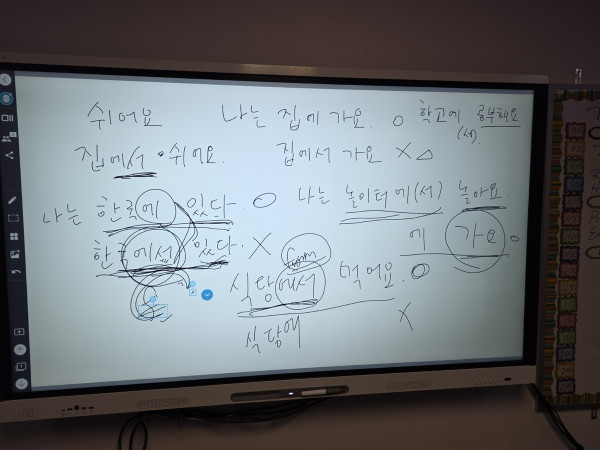 쉬어요 나는 집에 가요. O 학교에 공부해요
(서)
집에서 쉬어요. 집에서 가요 X △
나는 한국에 있다. O 나는 놀이터에(서) 놀아요.
한국에서 있다. X 에 가요.
from
식당에서 먹어요. O
식당에 X